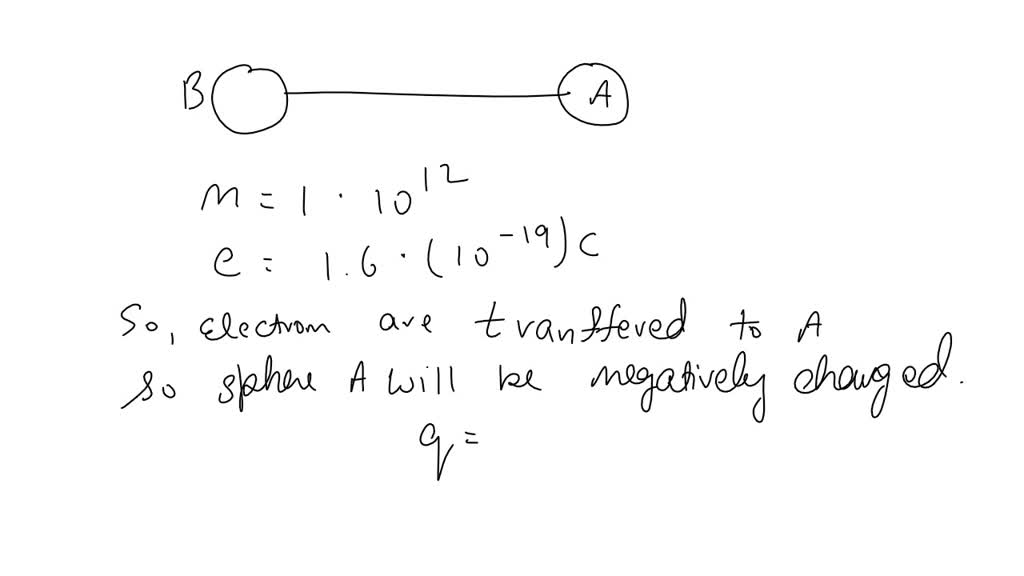 B A
n = 1 · 10^12
e = 1.6 · (10^-19) C
So, electron are transffered to A
so sphere A will be negatively charged.
q =